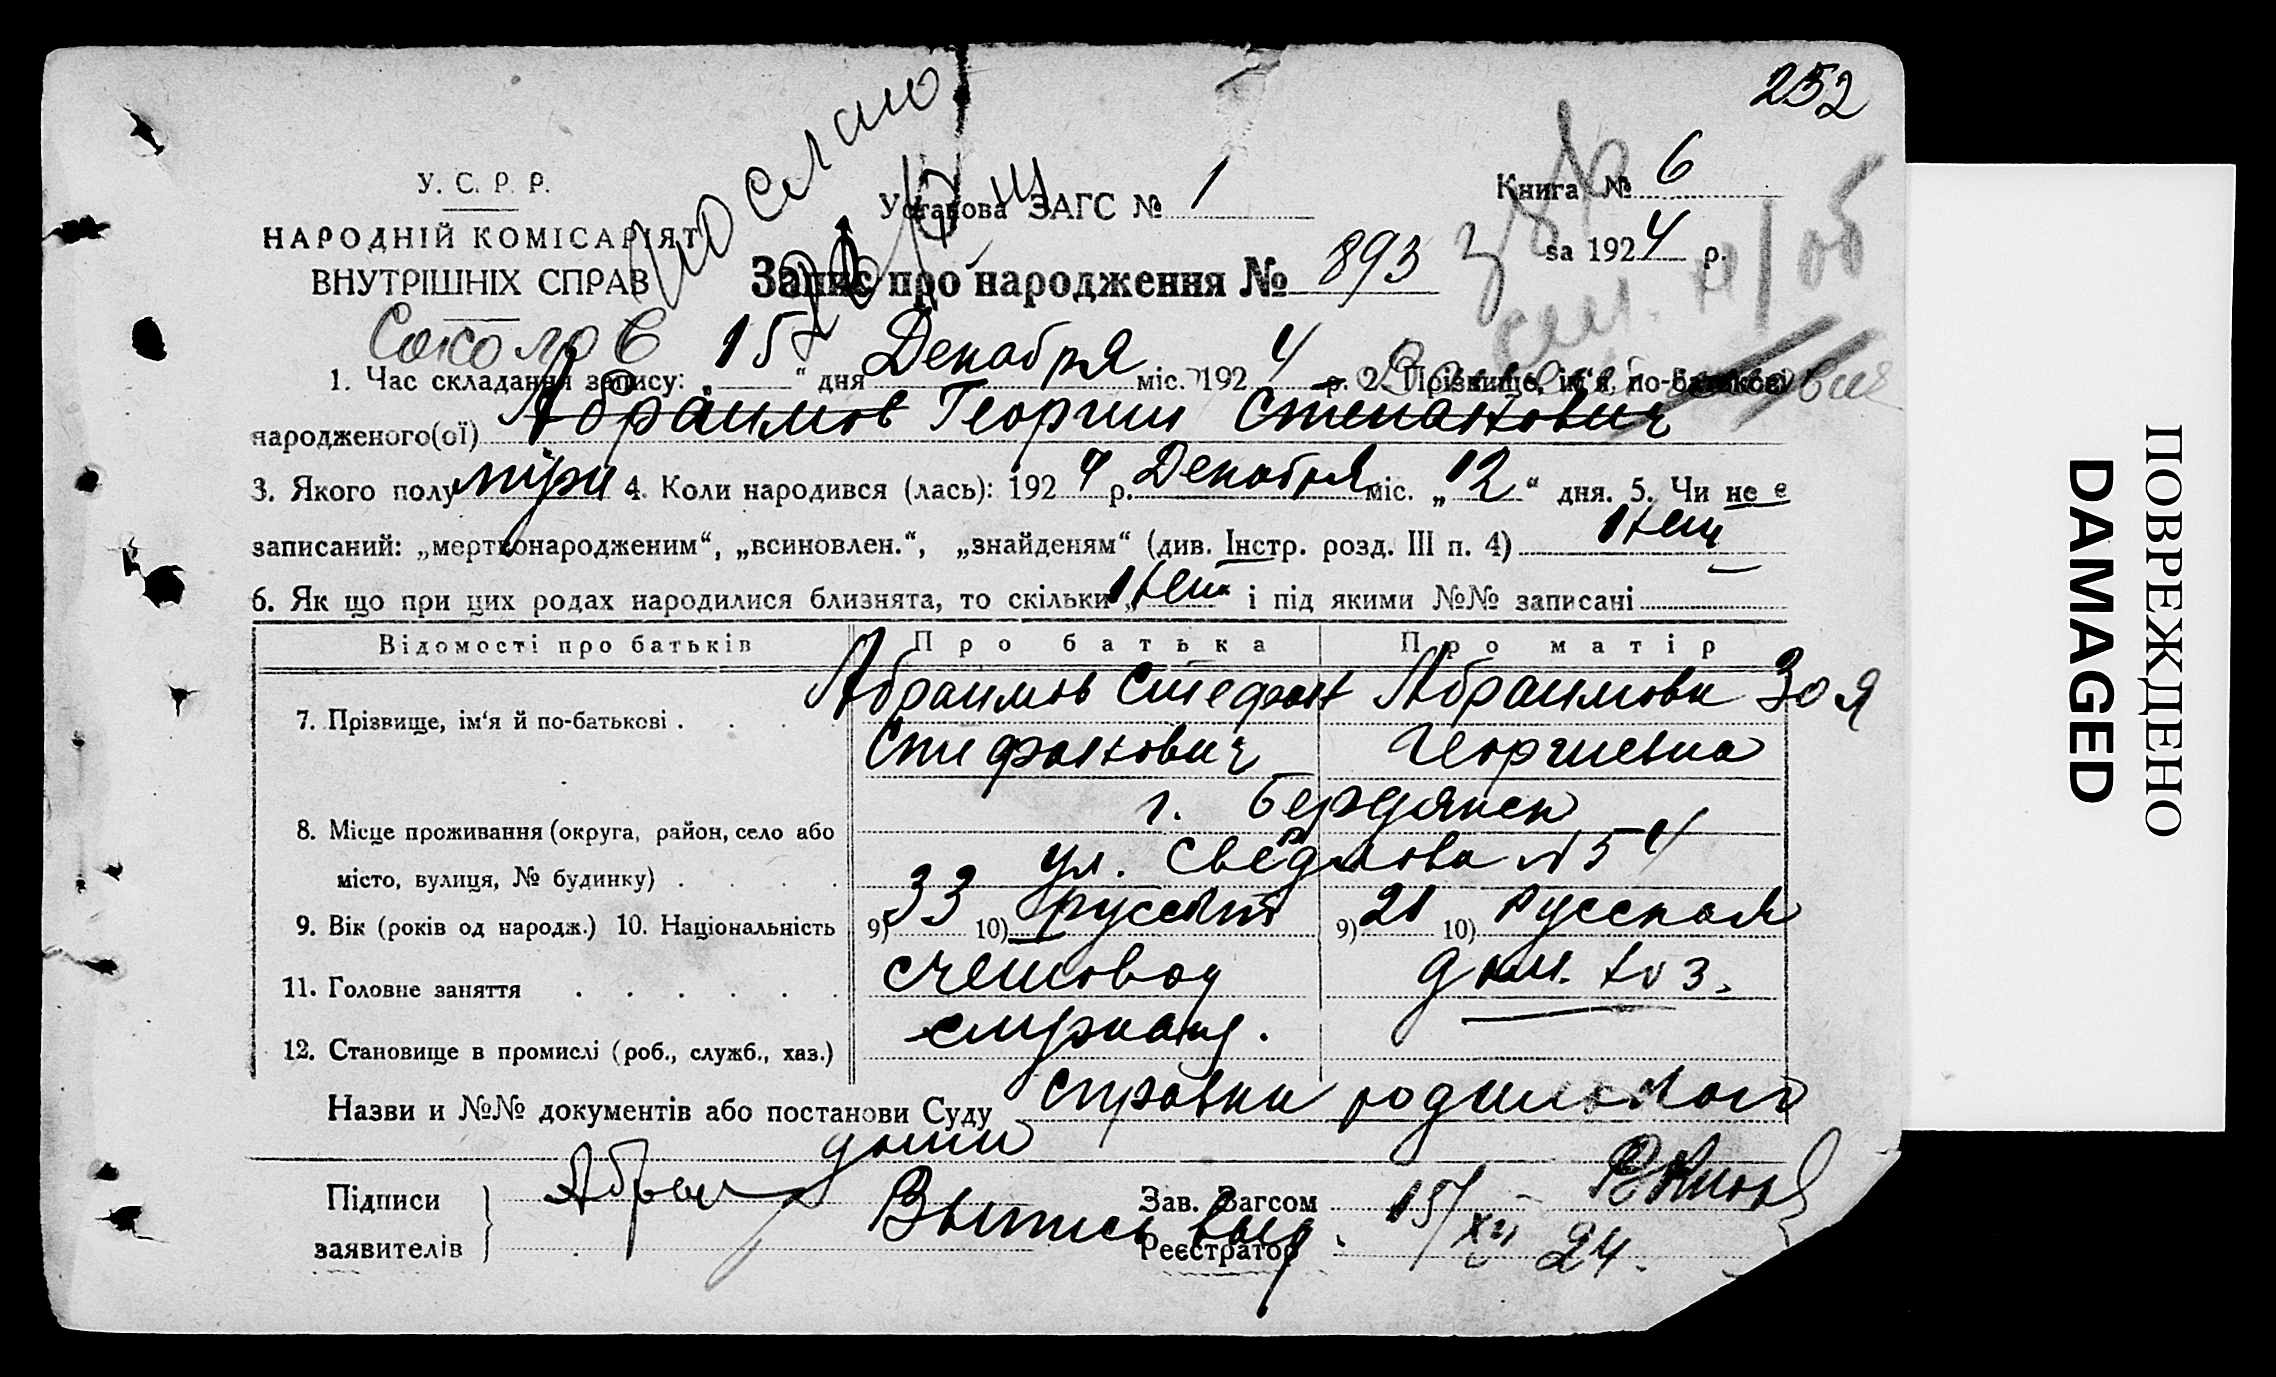 252
У. С. Р. Р.
НАРОДНІЙ КОМІСАРІЯТ
ВНУТРІШНІХ СПРАВ
послано
Установа ЗАГС № 1
Книга № 6
за 1924 р.
Запис про народження № 893
Соколов
1. Час складання запису: „15“ дня Декабря міс. 1924 р. 2. Прізвище, ім'я, по-батькові
народженого(ої) Абраимов Георгий Степанович
3. Якого полу муж 4. Коли народився (лась): 1924 р. Декабря міс. „12“ дня. 5. Чи не є
записаний: „мертвонародженим“, „всиновлен.“, „знайденям“ (див. Інстр. розд. III п. 4) Нет
6. Як що при цих родах народилися близнята, то скільки „Нет“ і під якими №№ записані
Відомості про батьків Про батька Про матір
7. Прізвище, ім'я й по-батькові . Абраимов Стефан Абраимова Зоя
Стефанович Георгиевна
г. Бердянск
8. Місце проживання (округа, район, село або
місто, вулиця, № будинку) . ул. Свердлова № 54
9. Вік (років од народж.) 10. Національність 9) 33 10) русский 9) 21 10) Русская
11. Головне заняття счетовод дом. хоз.
12. Становище в промислі (роб., служб., хаз.) служащ.
Назви и №№ документів або постанови Суду справка родильного
дома
Підписи
заявителів
Выпись выд.
Зав. Загсом
Реєстратор
15/XII 24.
ПОВРЕЖДЕНО
DAMAGED